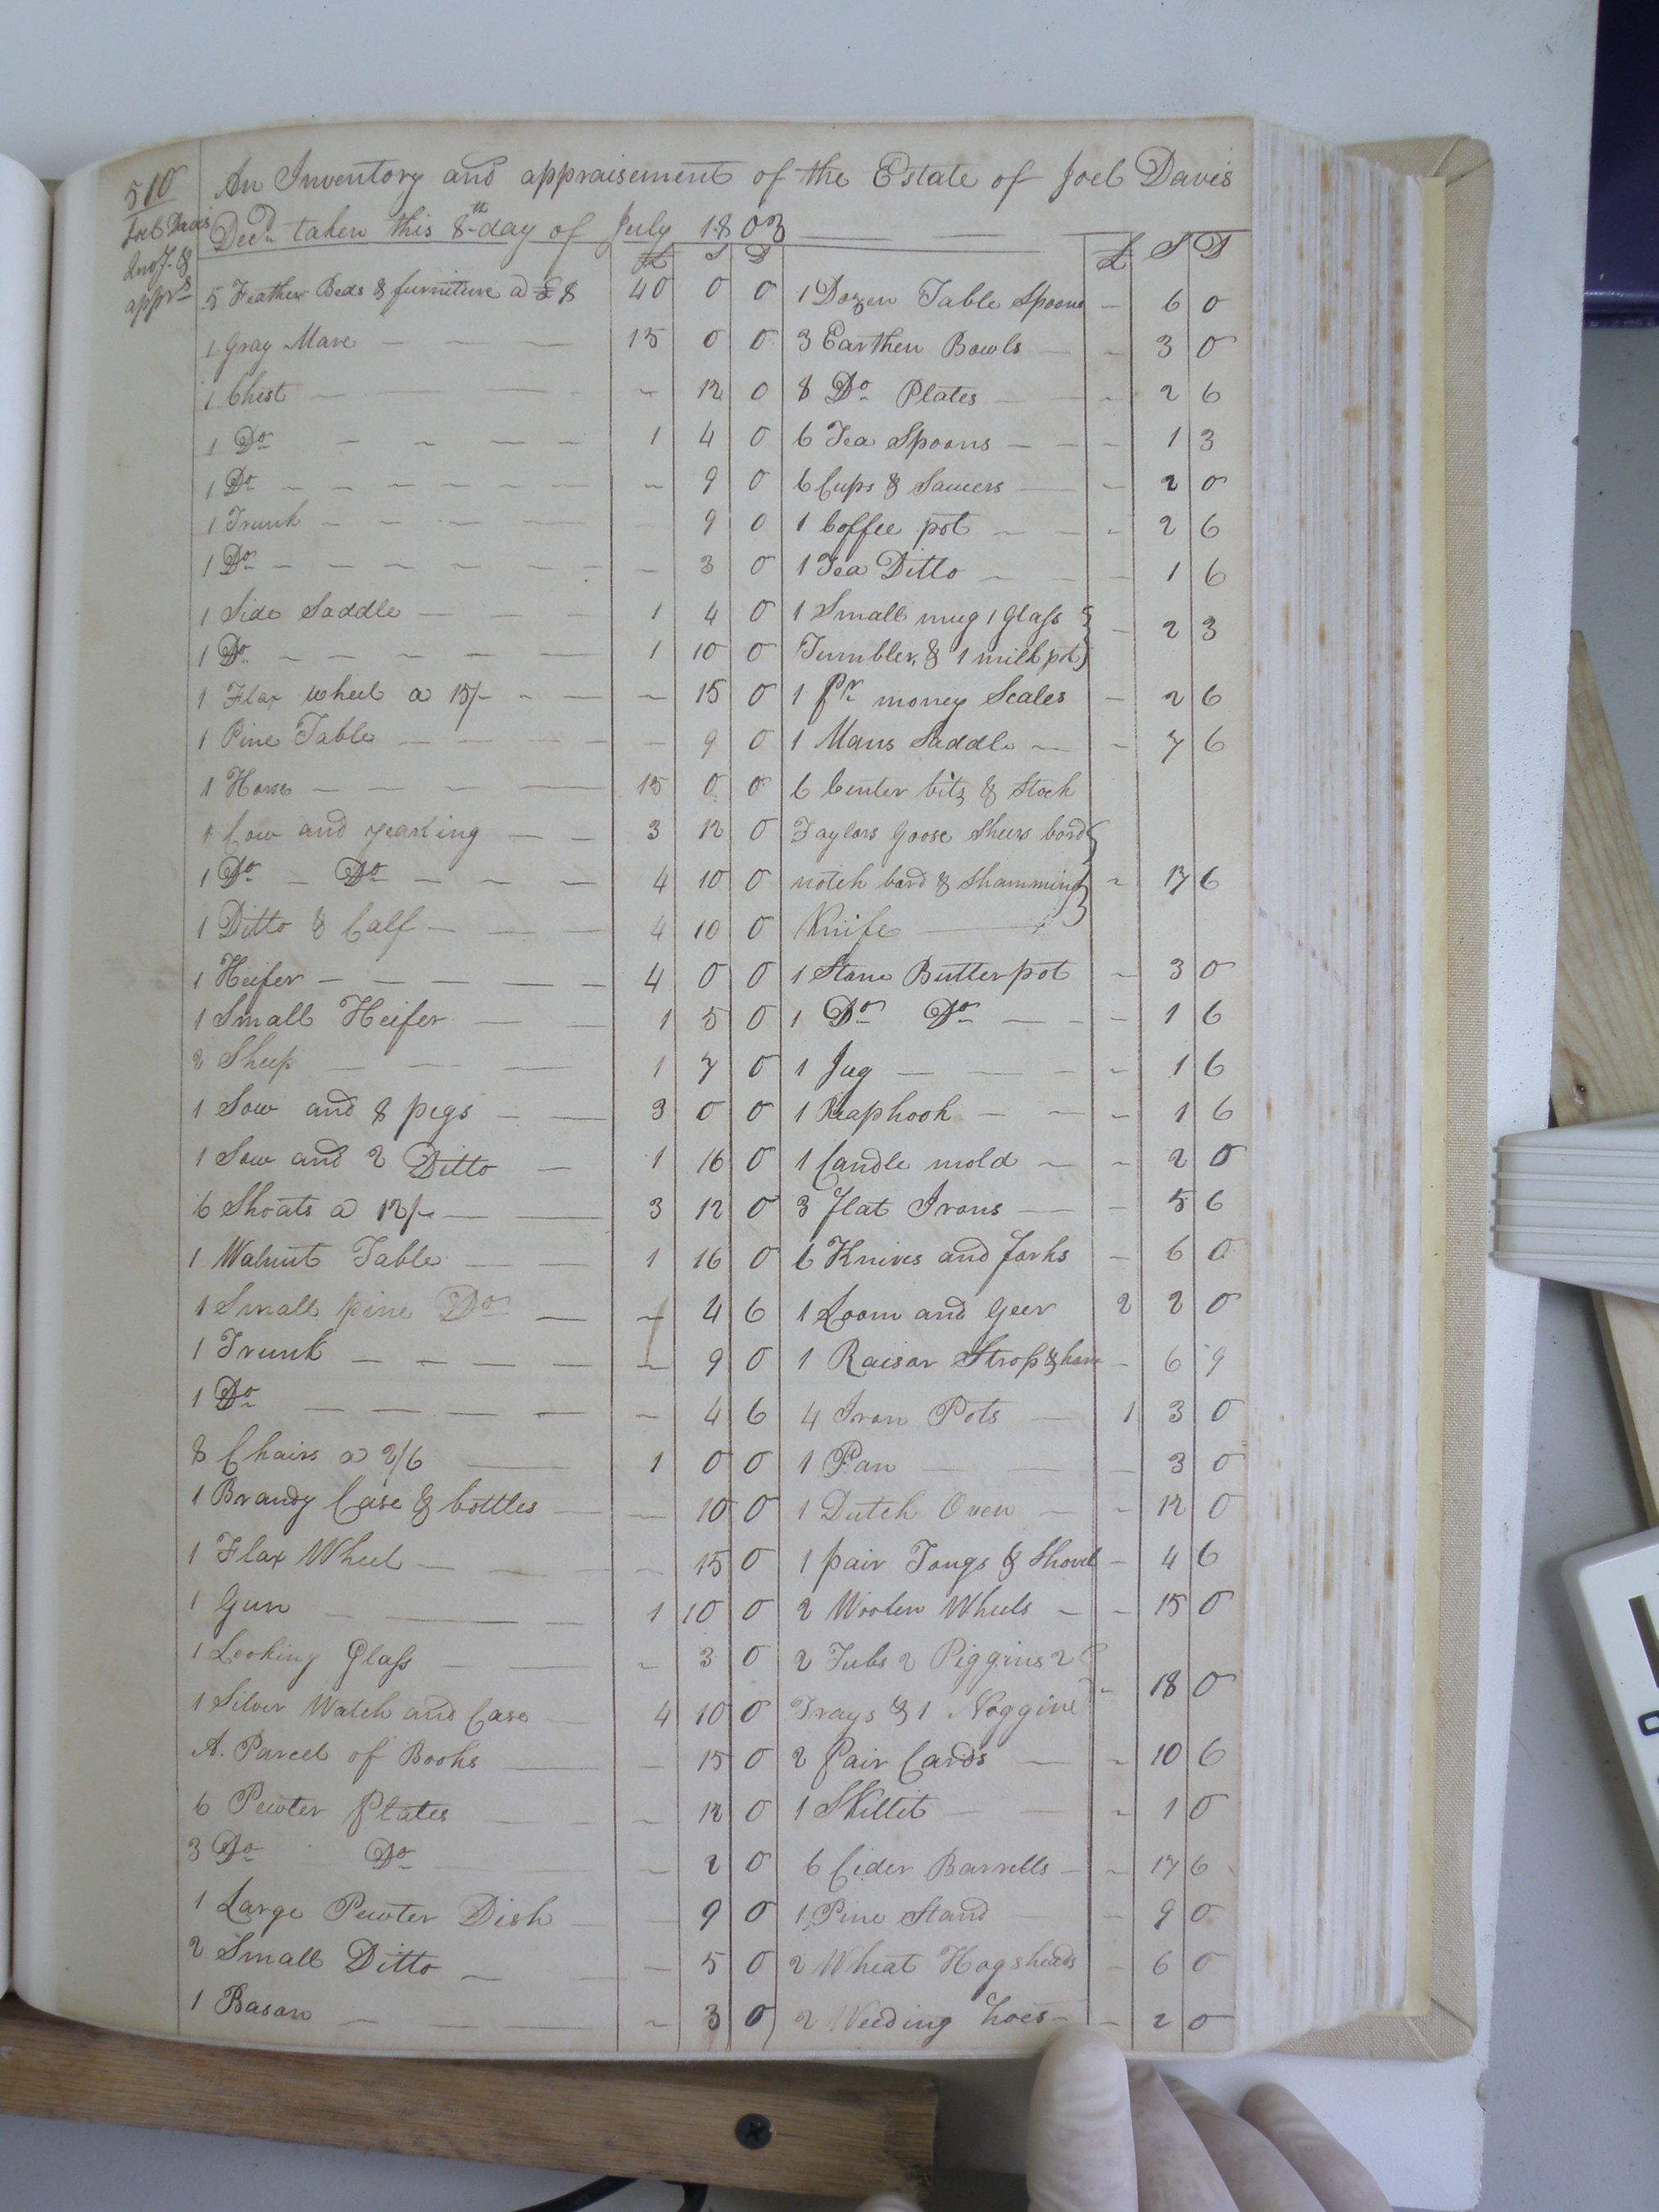 510
Joel Davis
Invy. &
apprs
An Inventory and appraisement of the Estate of Joel Davis
Decd. taken this 8th day of July 1803
£ S D
5 Feather Beds & furniture a £8 40 0 0
1 Gray Mare 15 0 0
1 Chest - 12 0
1 Do 1 4 0
1 Do - 9 0
1 Trunk 9 0
1 Do - 3 0
1 Side Saddle 1 4 0
1 Do 1 10 0
1 Flax wheel a 15/- - 15 0
1 Pine Table - 9 0
1 Horse 15 0 0
1 Cow and yearling 3 12 0
1 Do - Do 4 10 0
1 Ditto & Calf 4 10 0
1 Heifer 4 0 0
1 Small Heifer 1 5 0
2 Sheep 1 7 0
1 Sow and 8 pigs 3 0 0
1 Sow and 2 Ditto 1 16 0
6 Shoats a 12/- 3 12 0
1 Walnut Table 1 16 0
1 Small pine Do - 4 6
1 Trunk - 9 0
1 Do - 4 6
8 Chairs a 2/6 1 0 0
1 Brandy Case & bottles - 10 0
1 Flax Wheel - 15 0
1 Gun 1 10 0
1 Looking Glass - 3 0
1 Silver Watch and Case 4 10 0
A. Parcel of Books - 15 0
6 Pewter Plates - 12 0
3 Do Do - 2 0
1 Large Pewter Dish 9 0
2 Small Ditto - 5 0
1 Bason - 3 0
£ S D
1 Dozen Table Spoons - 6 0
3 Earthen Bowls - 3 0
8 Do Plates - 2 6
6 Tea Spoons - 1 3
6 Cups & Saucers - 2 0
1 Coffee pot - 2 6
1 Tea Ditto - 1 6
1 Small mug 1 Glass
Tumbler, & 1 milk pot - 2 3
1 Pr money Scales - 2 6
1 Mans Saddle - 7 6
6 Center bits & Stock
Taylors Goose Shears bord
notch bord & Shamming - 17 6
Knife
1 Stone Butter pot - 3 0
1 Do Do - 1 6
1 Jug - 1 6
1 Reaphook - 1 6
1 Candle mold - 2 0
3 Flat Irons - 5 6
6 Knives and forks - 6 0
1 Loom and Geer 2 2 0
1 Raisor Strop & hone - 6 9
4 Iron Pots 1 3 0
1 Pan - 3 0
1 Dutch Oven - 12 0
1 pair Tongs & Shovel - 4 6
2 Woolen Wheels - 15 0
2 Tubs 2 Piggins 2
Trays & 1 Noggine - 18 0
2 Pair Cards - 10 6
1 Skillet - 1 0
6 Cider Barrells - 17 6
1 Pine Stand - 9 0
2 Wheat Hogsheads - 6 0
2 Weeding hoes - 2 0